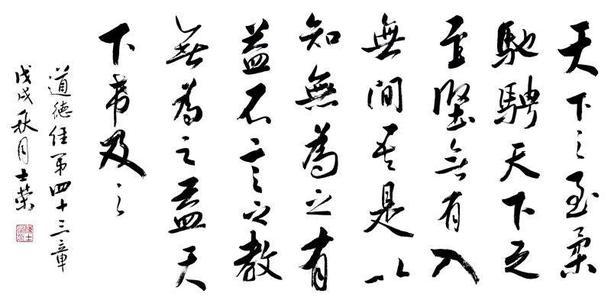 天下之至柔
馳騁天下之
至堅無有入
無間吾是以
知無為之有
益不言之教
無為之益天
下希及之
道德經第四十三章
戊戌秋月士榮